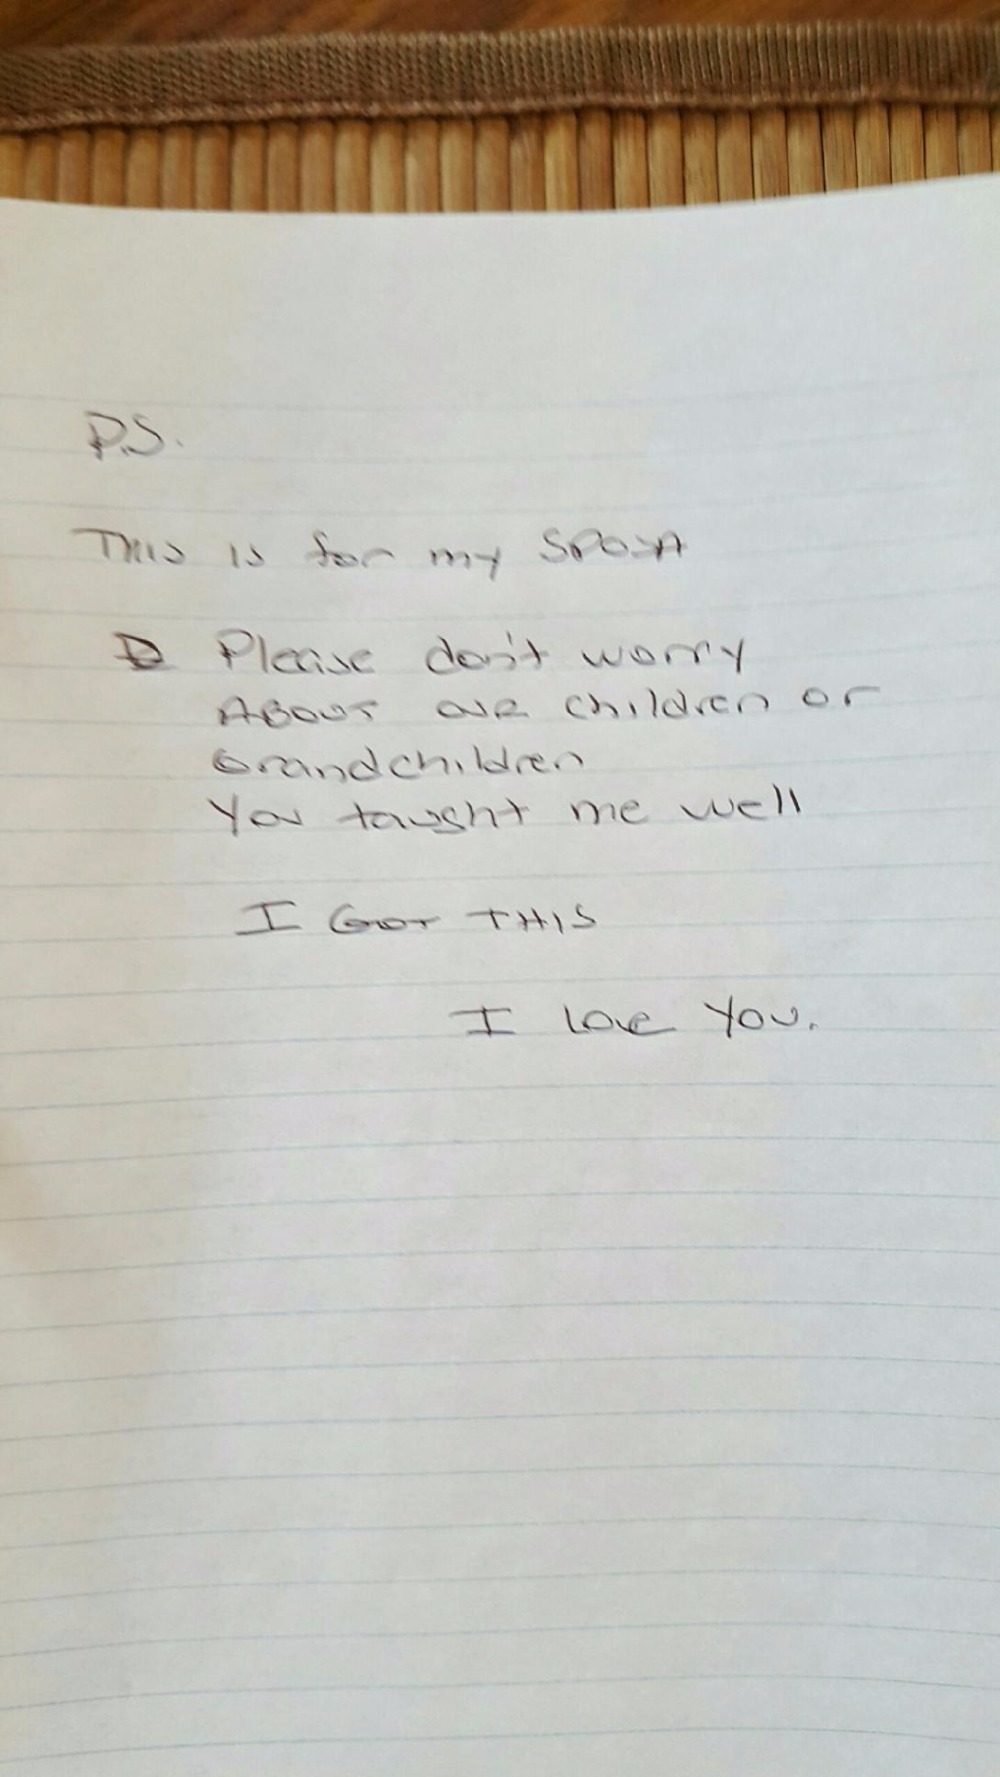 P.S.
This is for my SPOSA
Please don't worry
ABOUT OUR children or
Grandchildren
You taught me well
I GOT THIS
I love you.